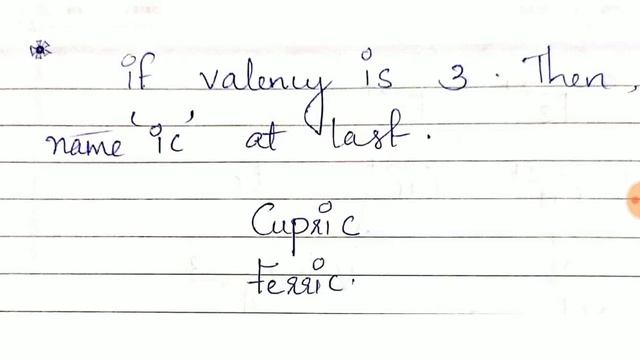 if valency is 3. Then,
name 'ic' at last.
Cupric
ferric.